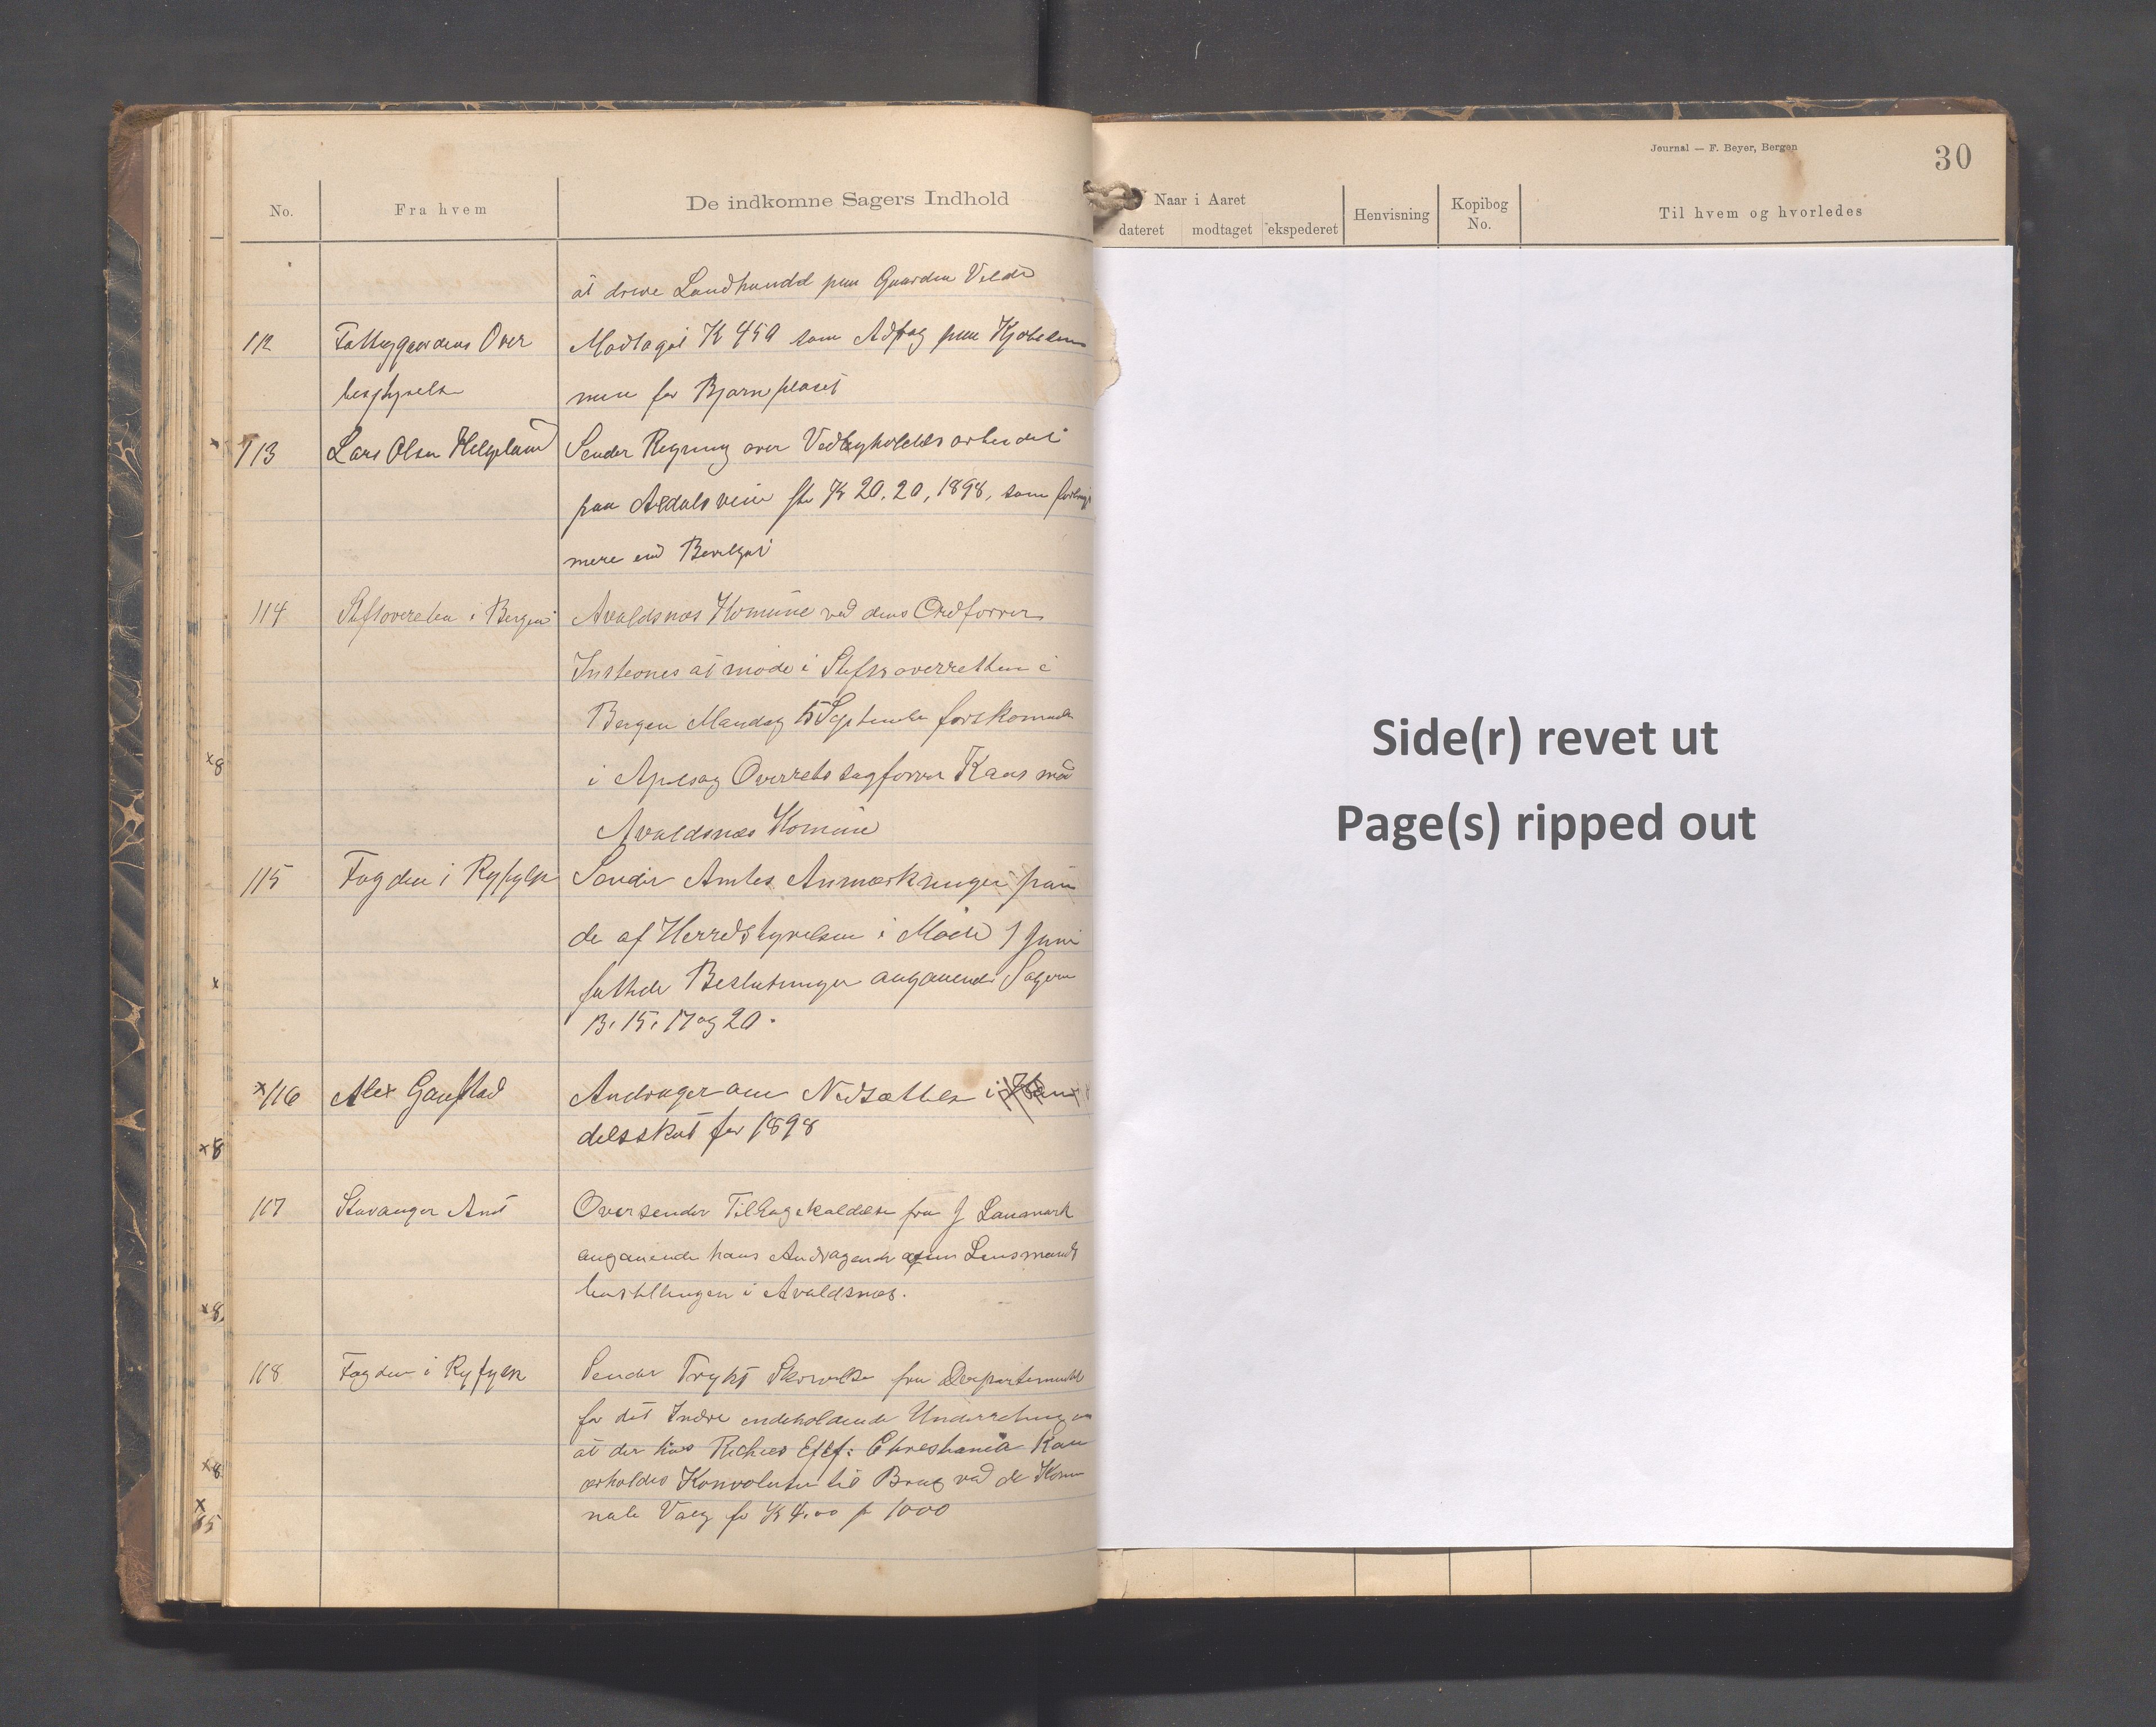 No.
Fra hvem
De indkomne Sagers Indhold
at drive Landhandel paa Gaarden Velde
112 Fattiggaardens Over Modtaget K 450 som Afdrag paa Kjøbesum
bestyrelse men for Bjørneplaset
113 Lars Olsen Helgeland Sender Regning over Vedligeholdelsesarbeidet
paa Aedalsveien K 20.20, 1898, som
mere end Bevilget
114 Stiftsoveretten i Bergen Avaldsnæs Komune ved dens Ordforrer
at møde i Stiftsoverretten i
Bergen Mandag 15 September førstkomende
i Apelsag Overretssagforrer Kaas mod
Avaldsnæs Komune
115 Fogden i Ryfylke Sender Amtes Anmærkninger paa
de af Herredstyrelsen i Møde 1 Juni
fattede Beslutninger angaaende Sagerne
13, 15, 17 og 20.
x 116 Alex Gaustad Andrager om Nedsættelse i
delsskat for 1898
117 Stavanger Amt Oversender Tilbagekaldelse fra J Lanmark
angaaende hans Andragende om Lensmands
bestillingen i Avaldsnæs.
118 Fogden i Ryfylke Sender Trykt Skrivelse fra Departementet
for det Indre indeholdende Underretning om
at der hos Richies Eftf: Christiania kan
erholdes Konvolutter til Brug ved de Komu
nale Valg for K 4.00 pr 1000
x
x8
x
x8
x8
x8
x
15
Journal — F. Beyer, Bergen
30
Naar i Aaret
dateret
modtaget
ekspederet
Henvisning
Kopibog
No.
Til hvem og hvorledes
Side(r) revet ut
Page(s) ripped out